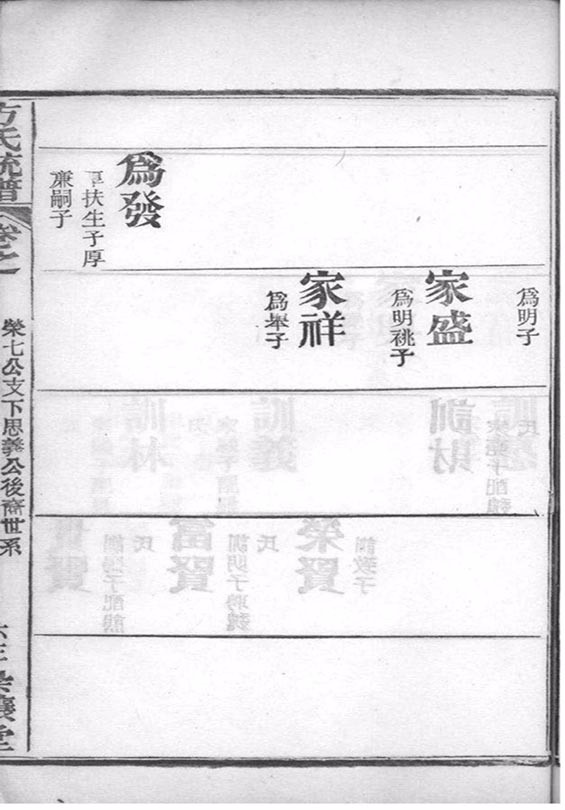 為發
厚扶生子厚
廉嗣子
為明子
家盛
為明祧子
家祥
為舉子
方氏統譜
卷之
榮七公支下思義公後裔世系
六年